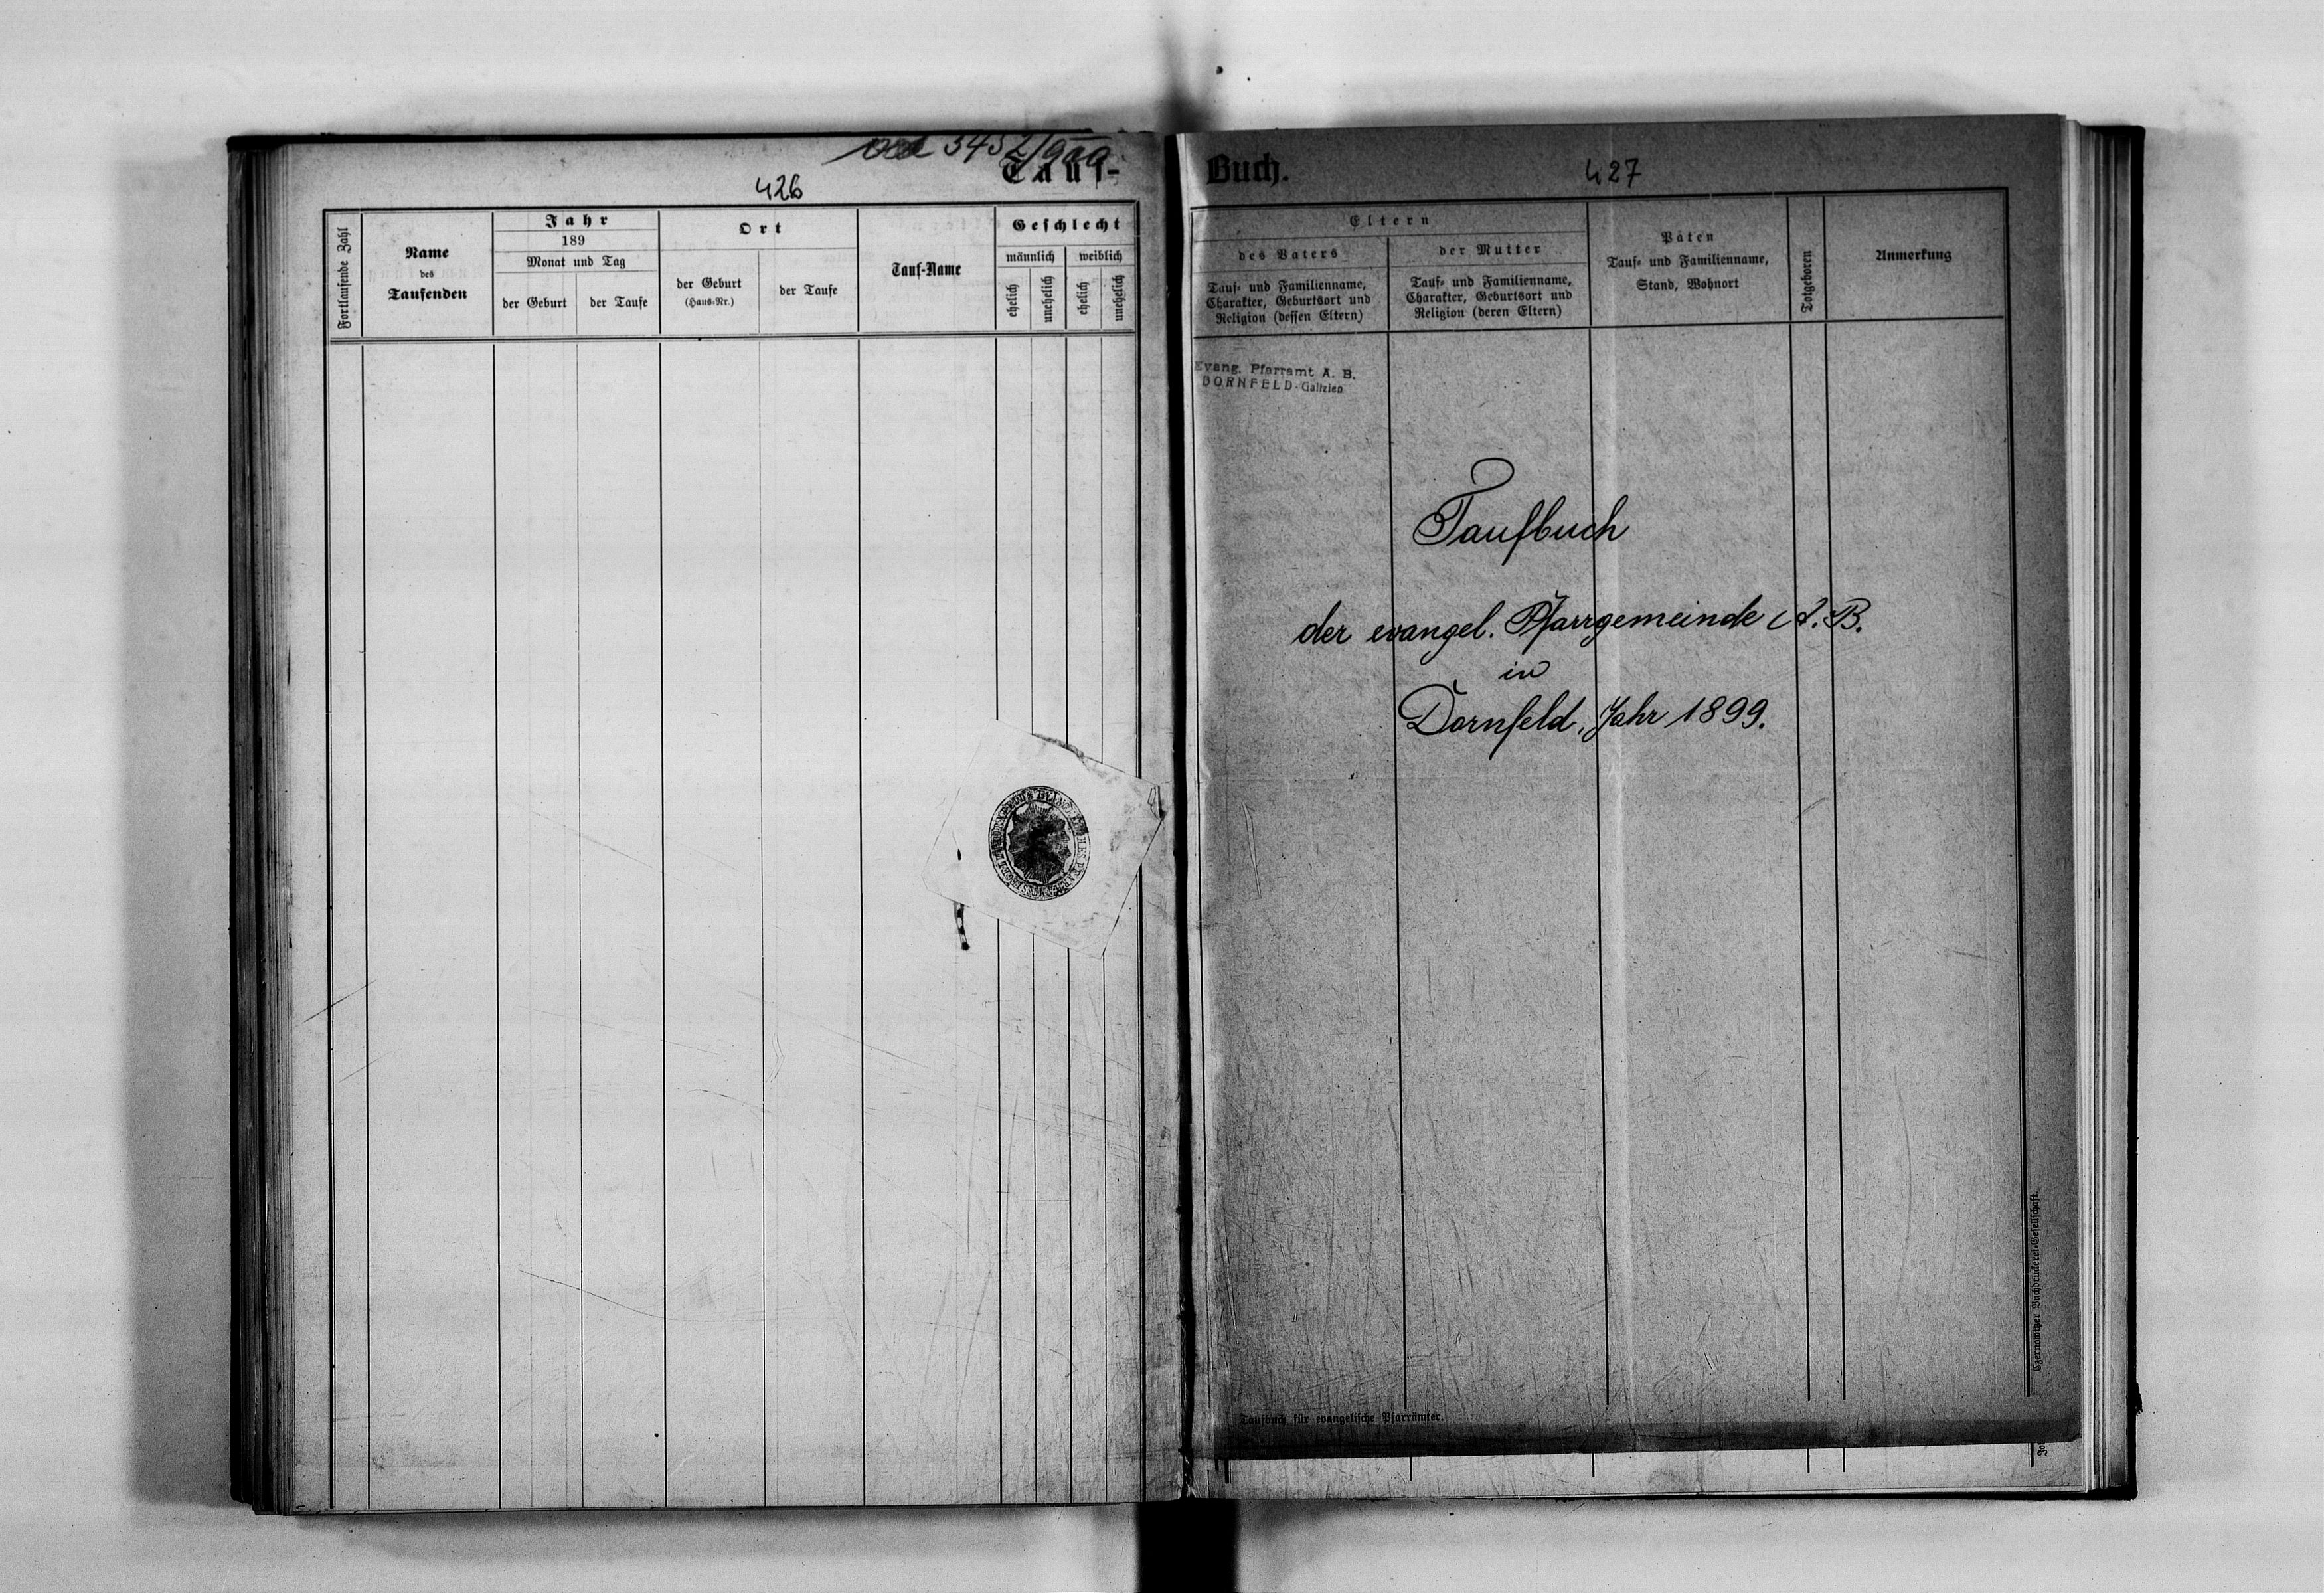 3452/900
426
Tauf-
Fortlaufende Zahl
Name
des
Taufenden
Jahr
189
Monat und Tag
der Geburt
der Taufe
Ort
der Geburt
(Haus-Nr.)
der Taufe
Tauf-Name
Geschlecht
männlich
weiblich
ehelich
unehelich
ehelich
unehelich
Buch.
427
Eltern
des Vaters
Tauf- und Familienname,
Charakter, Geburtsort und
Religion (dessen Eltern)
der Mutter
Tauf- und Familienname,
Charakter, Geburtsort und
Religion (deren Eltern)
Paten
Tauf- und Familienname,
Stand, Wohnort
Totgeboren
Anmerkung
Evang. Pfarramt A. B.
DORNFELD-Galizien
Taufbuch
der evangel. Pfarrgemeinde A. B.
in
Dornfeld, Jahr 1899.
Taufbuch für evangelische Pfarrämter.
Czernowitzer Buchdruckerei-Gesellschaft.